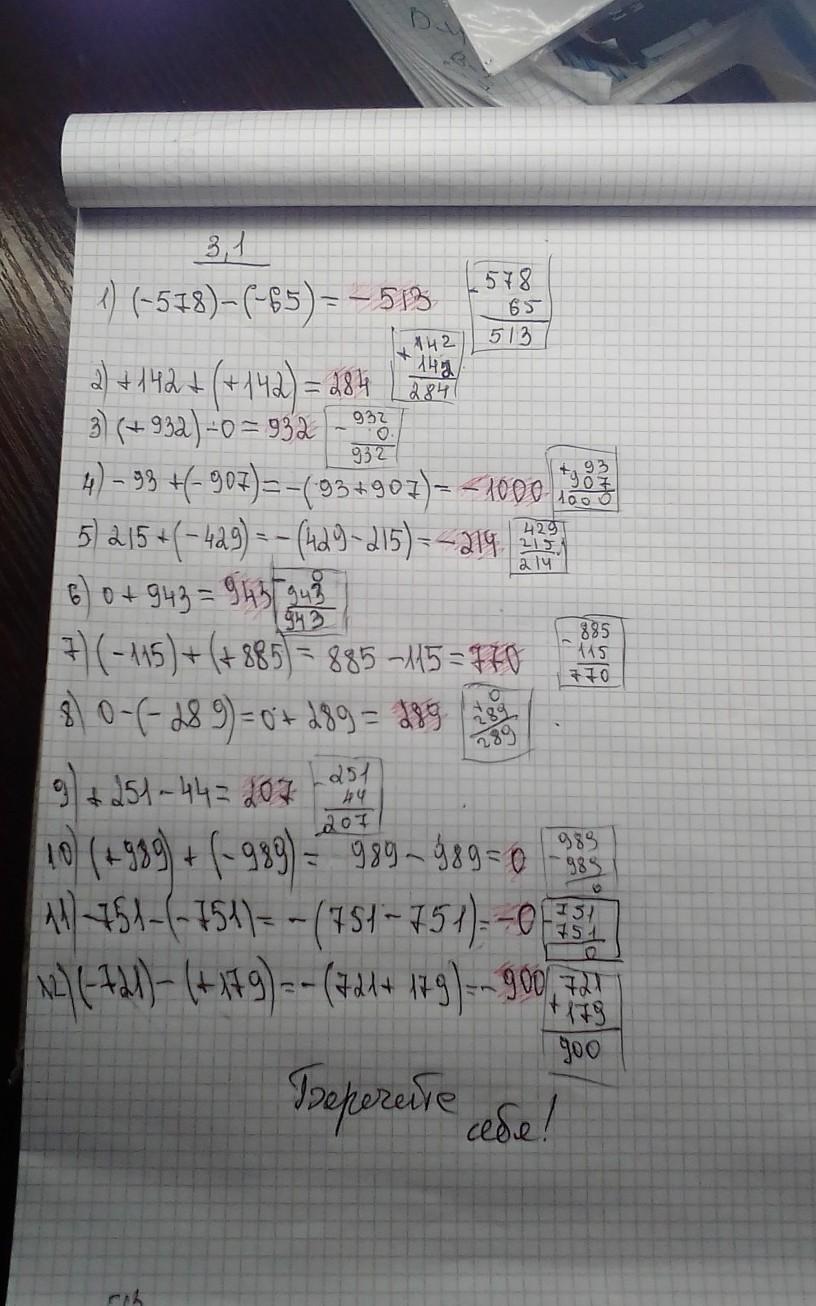 3,1
1) (-578)-(-65)=-513 -578
65
513
2) +142+(+142)=284 +142
142
284
3) (+932)-0=932 -932
0
932
4) -93+(-907)=-(93+907)=-1000 +93
907
1000
5) 215+(-429)=-(429-215)=-214 429
215
214
6) 0+943=943 0
943
943
7) (-115)+(+885)=885-115=770 -885
115
770
8) 0-(-289)=0+289=289 0
+289
289
9) +251-44=207 -251
44
207
10) (+989)+(-989)= 989-989=0 989
-989
0
11) -751-(-751)=-(751-751)=-0 -751
751
0
12) (-721)-(+179)=-(721+179)=-900 721
+179
900
Берегите
себя!